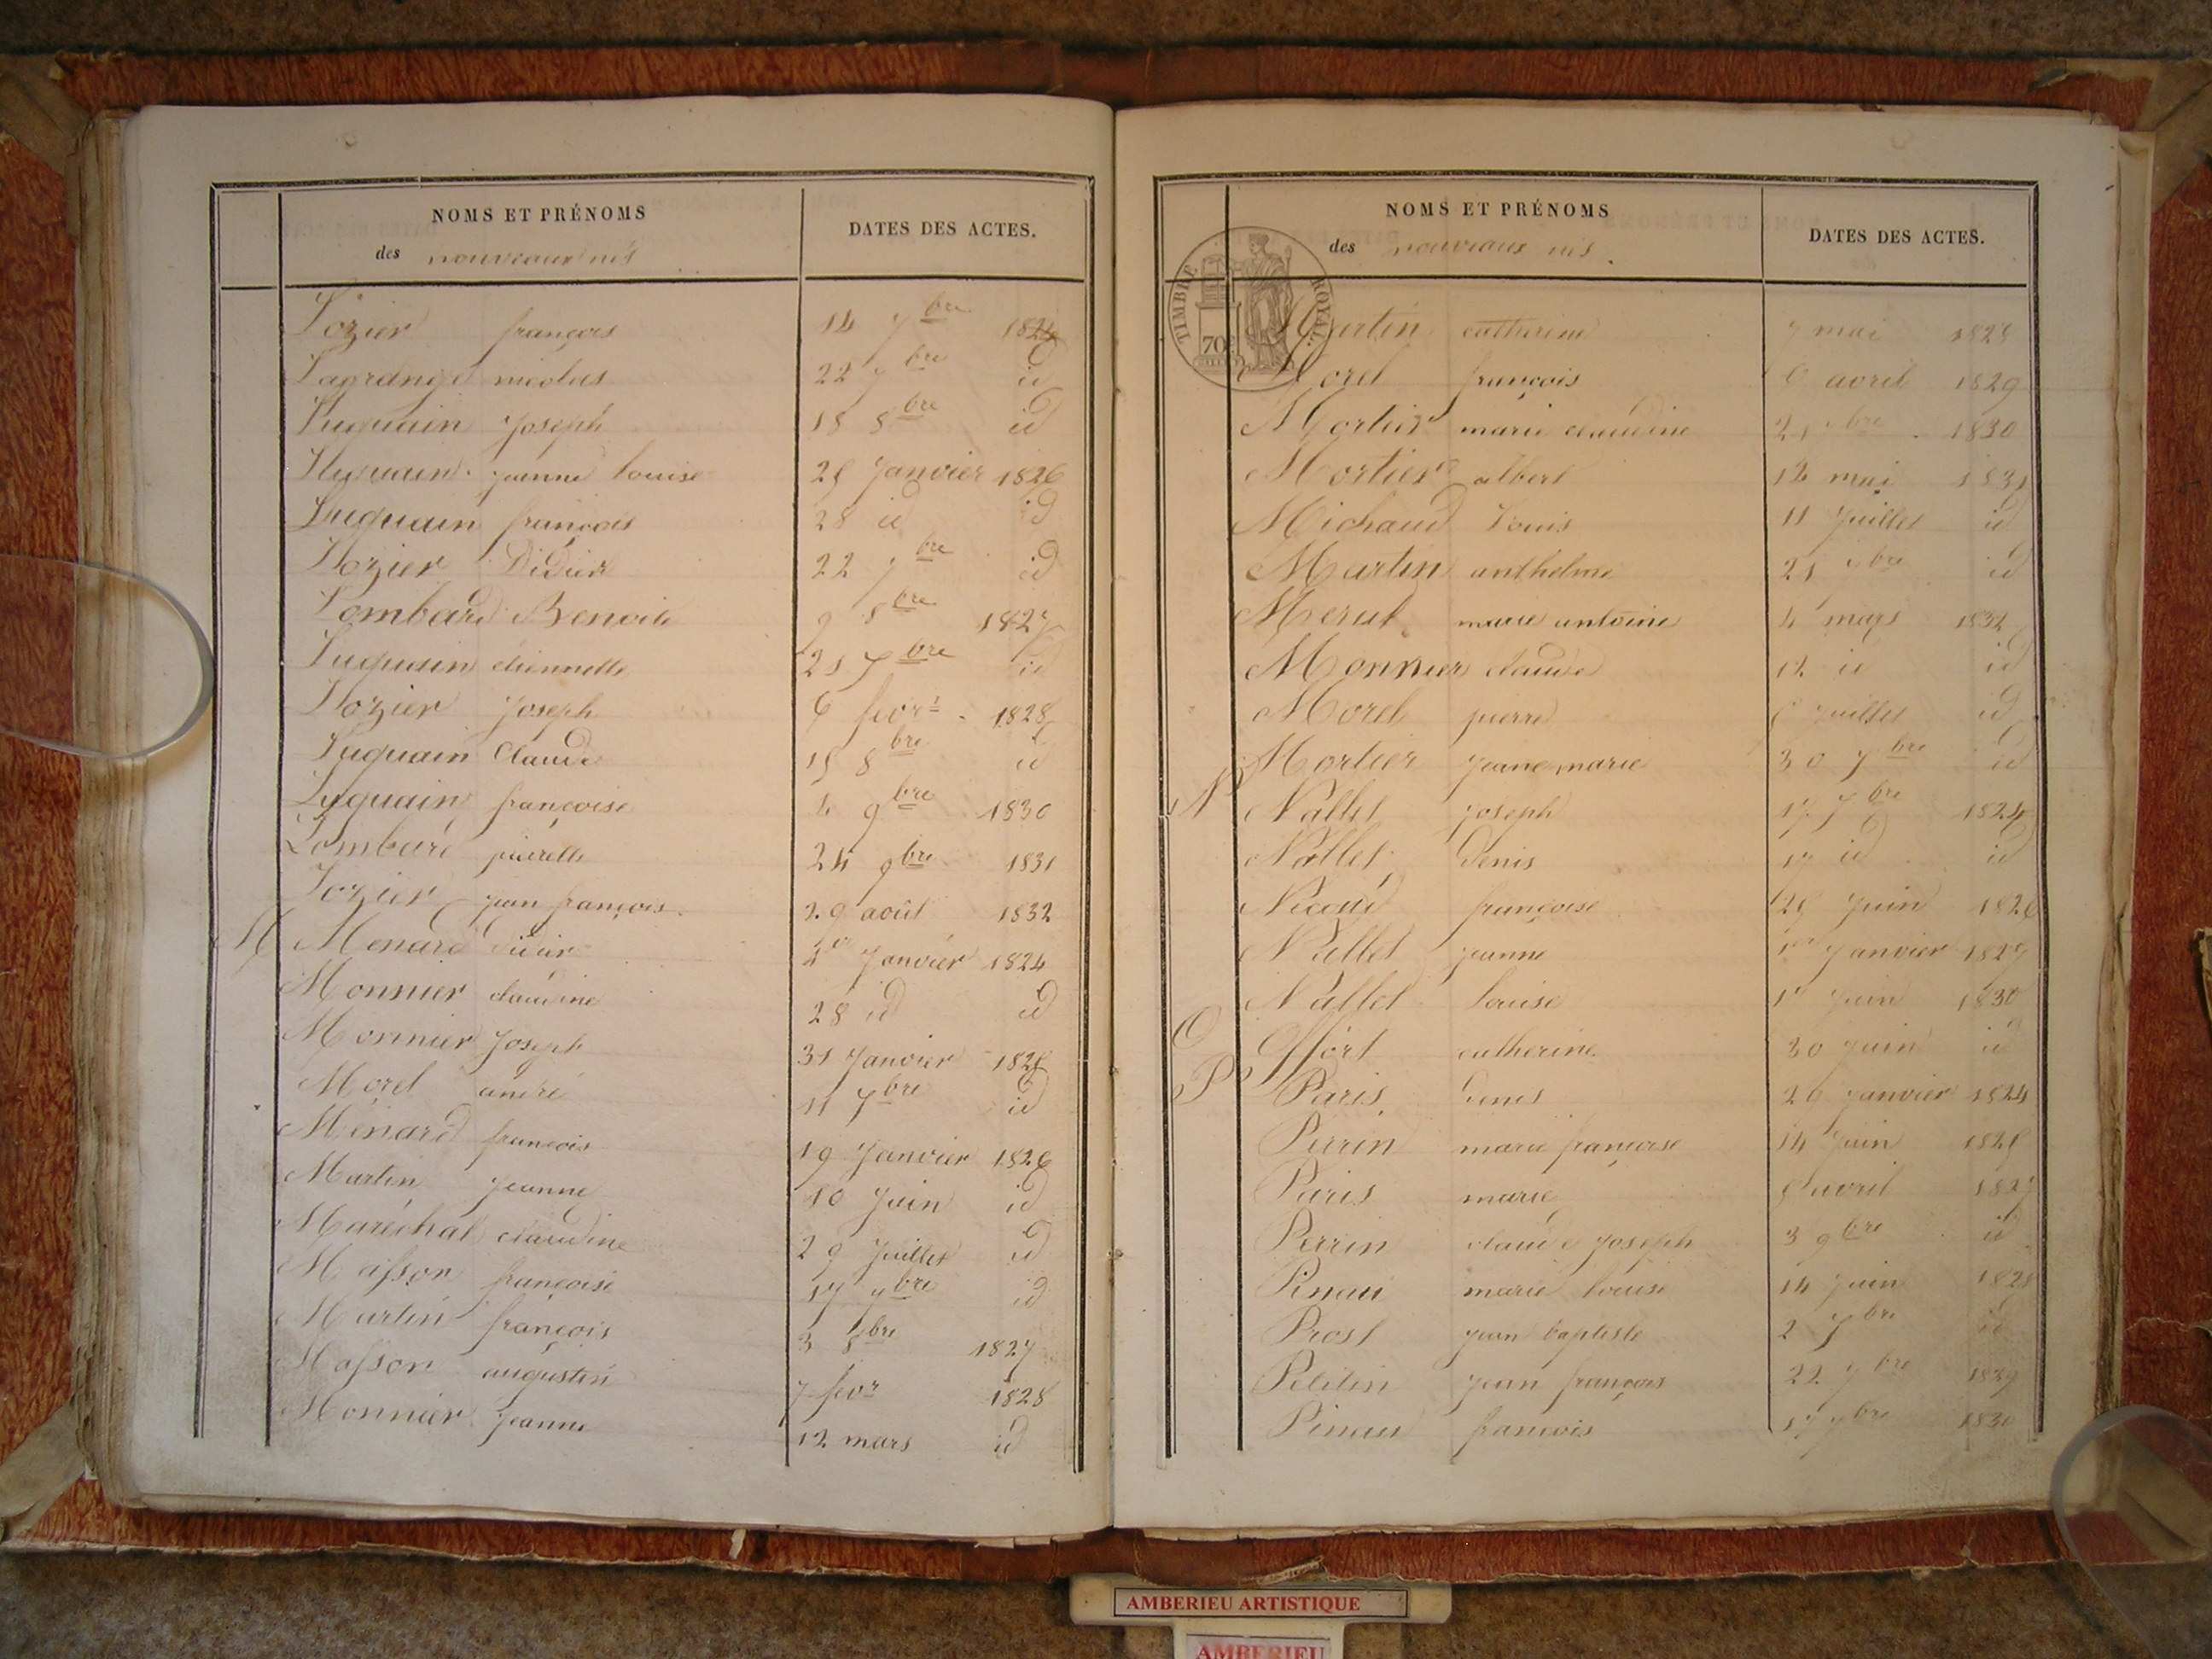 NOMS ET PRÉNOMS
des nouveaux nés
DATES DES ACTES.
Lozier françois 14 7bre 1824
Lagrange nicolas 22 7bre id
Luquain Joseph 18 8bre id
Luquain jeanne louise 25 Janvier 1826
Luquain françois 28 id id
Lozier Didier 22 7bre id
Lombard Benoite 9 8bre 1827
Luquain étiennette 25 7bre id
Lozier Joseph 6 fevr 1828
Luquain Claude 15 8bre id
Luquain françoise 4 9bre 1830
Lombard pierrette 24 9bre 1831
Lozier jean françois 29 août 1832
M Menard didier Janvier 1824
Monnier claudine 28 id id
Monnier Joseph 31 Janvier
Morel andré 11 7bre id
Ménard francois 19 Janvier 1826
Martin jeanne 10 Juin id
Maréchal claudine 29 Juillet id
Masson françoise 17 7bre id
Martin françois 3 8bre 1827
Masson augustin 7 fevr 1828
Monnier jeanne 12 mars id
NOMS ET PRÉNOMS
des nouveaux nés.
DATES DES ACTES.
TIMBRE ROYAL.
70c
Martin catherine 7 mai
Morel françois 6 avril 1829
Mortier marie claudine 1830
Mortier albert 12 mai 1831
Michaud Louis 11 Juillet id
Martin anthelme id
marie antoine 4 mars 1832
Monnier claude 12 id id
Morel pierre 6 juillet id
Mortier jeane marie 30 7bre id
N Nallet joseph 17 7bre 1824
Nallet Denis 17 id id
Nicoud françoise 25 Juin 1826
Nallet jeanne 1er Janvier 1827
Nallet louise 1er Juin 1830
O catherine 30 juin id
P Paris Denis 26 janvier 1824
Perrin marie françoise 14 Juin
Paris marie avril 1827
Perrin claude joseph 3 9bre id
Pinau marie louise 14 Juin 1828
Prost jean baptiste 2 7bre id
Petitin jean françois 22 7bre 1829
Pinau francois 17 7bre 1830
AMBERIEU ARTISTIQUE
AMBERIEU